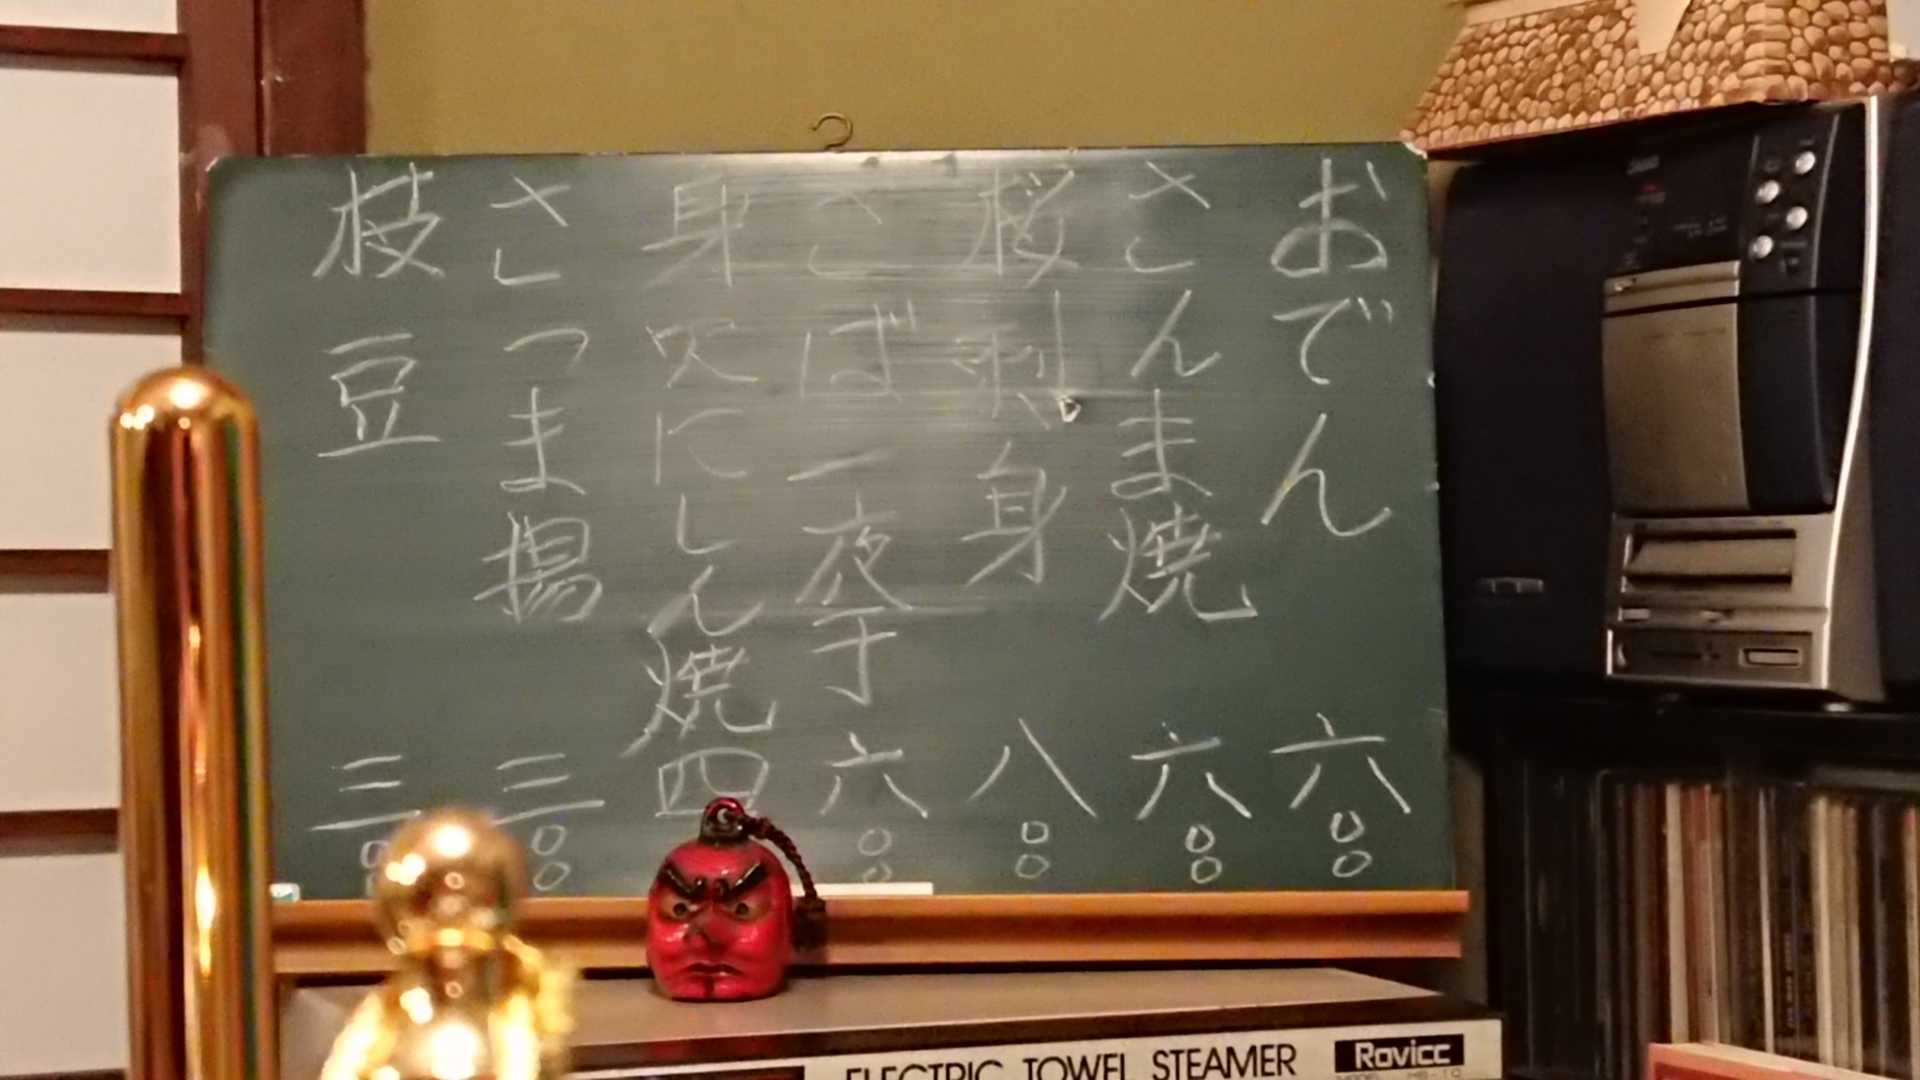 おでん 六〇〇
さんま焼 六〇〇
桜刺身 八〇〇
さば一夜干 六〇〇
身欠にしん焼 四
さつま揚 三〇〇
枝豆 三〇〇
ELECTRIC TOWEL STEAMER
Rovicc